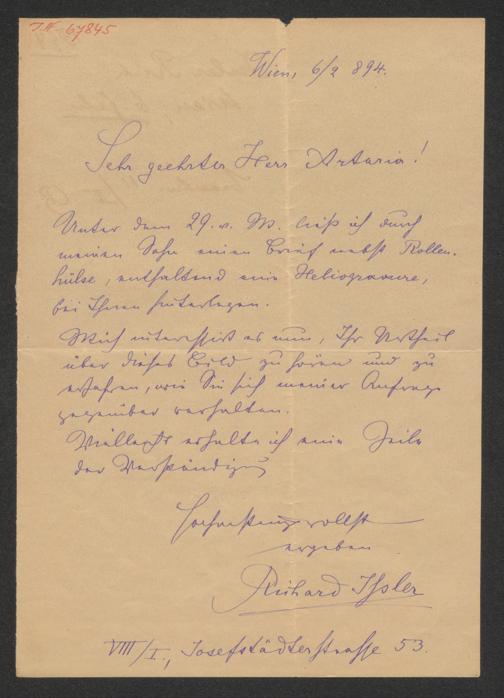 I.N. 67845
Wien, 6/2 894.
Sehr geehrter Herr Artaria!
Unter dem 29. v. M. ließ ich durch
meinen Sohn einen Brief nebst Rollen-
hülse, enthaltend eine Heliogravure,
bei Ihnen hinterlegen.
Mich interessirt es nun, Ihr Urtheil
über dieses Bild zu hören und zu
erfahren, wie Sie sich meiner Anfrage
gegenüber verhalten.
Vielleicht erhalte ich eine Zeile
der Verständigung
Hochachtungsvollst
ergeben
Richard
VIII/I., Josefstädterstrasse 53.